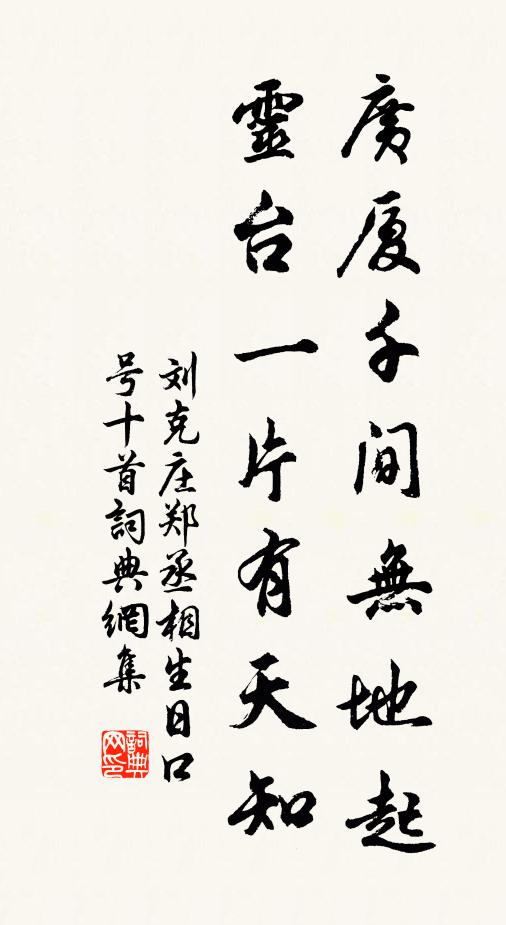 廣厦千间無地起
靈台一片有天知
刘克庄郑丞相生日口
号十首詞典網集
詞典
网印